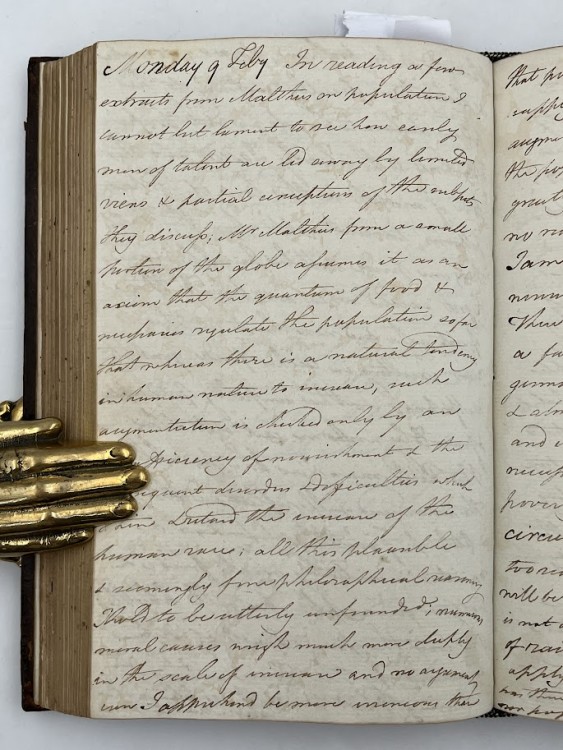 Monday 9 Feby In reading a few
extracts from Malthus on population I
cannot but lament to see how easily
men of talent are led away by limited
views & partial conceptions of the subjects
they discuss; Mr Malthus from a small
portion of the globe assumes it as an
axiom that the quantum of food &
necessaries regulate the population so far
that whereas there is a natural tendency
in human nature to increase, such
augmentation is checked only by an
of nourishment & the
disorders & difficulties which
the increase of the
human race; all this plausible
& seemingly fine philosophical reasoning
I hold to be utterly unfounded; numerous
moral causes weigh much more deeply
in the scale of increase and no argument
can I apprehend be more erroneous than
that
augm
the
no
I am
a
and
circu
too
will be
is not
of
apply